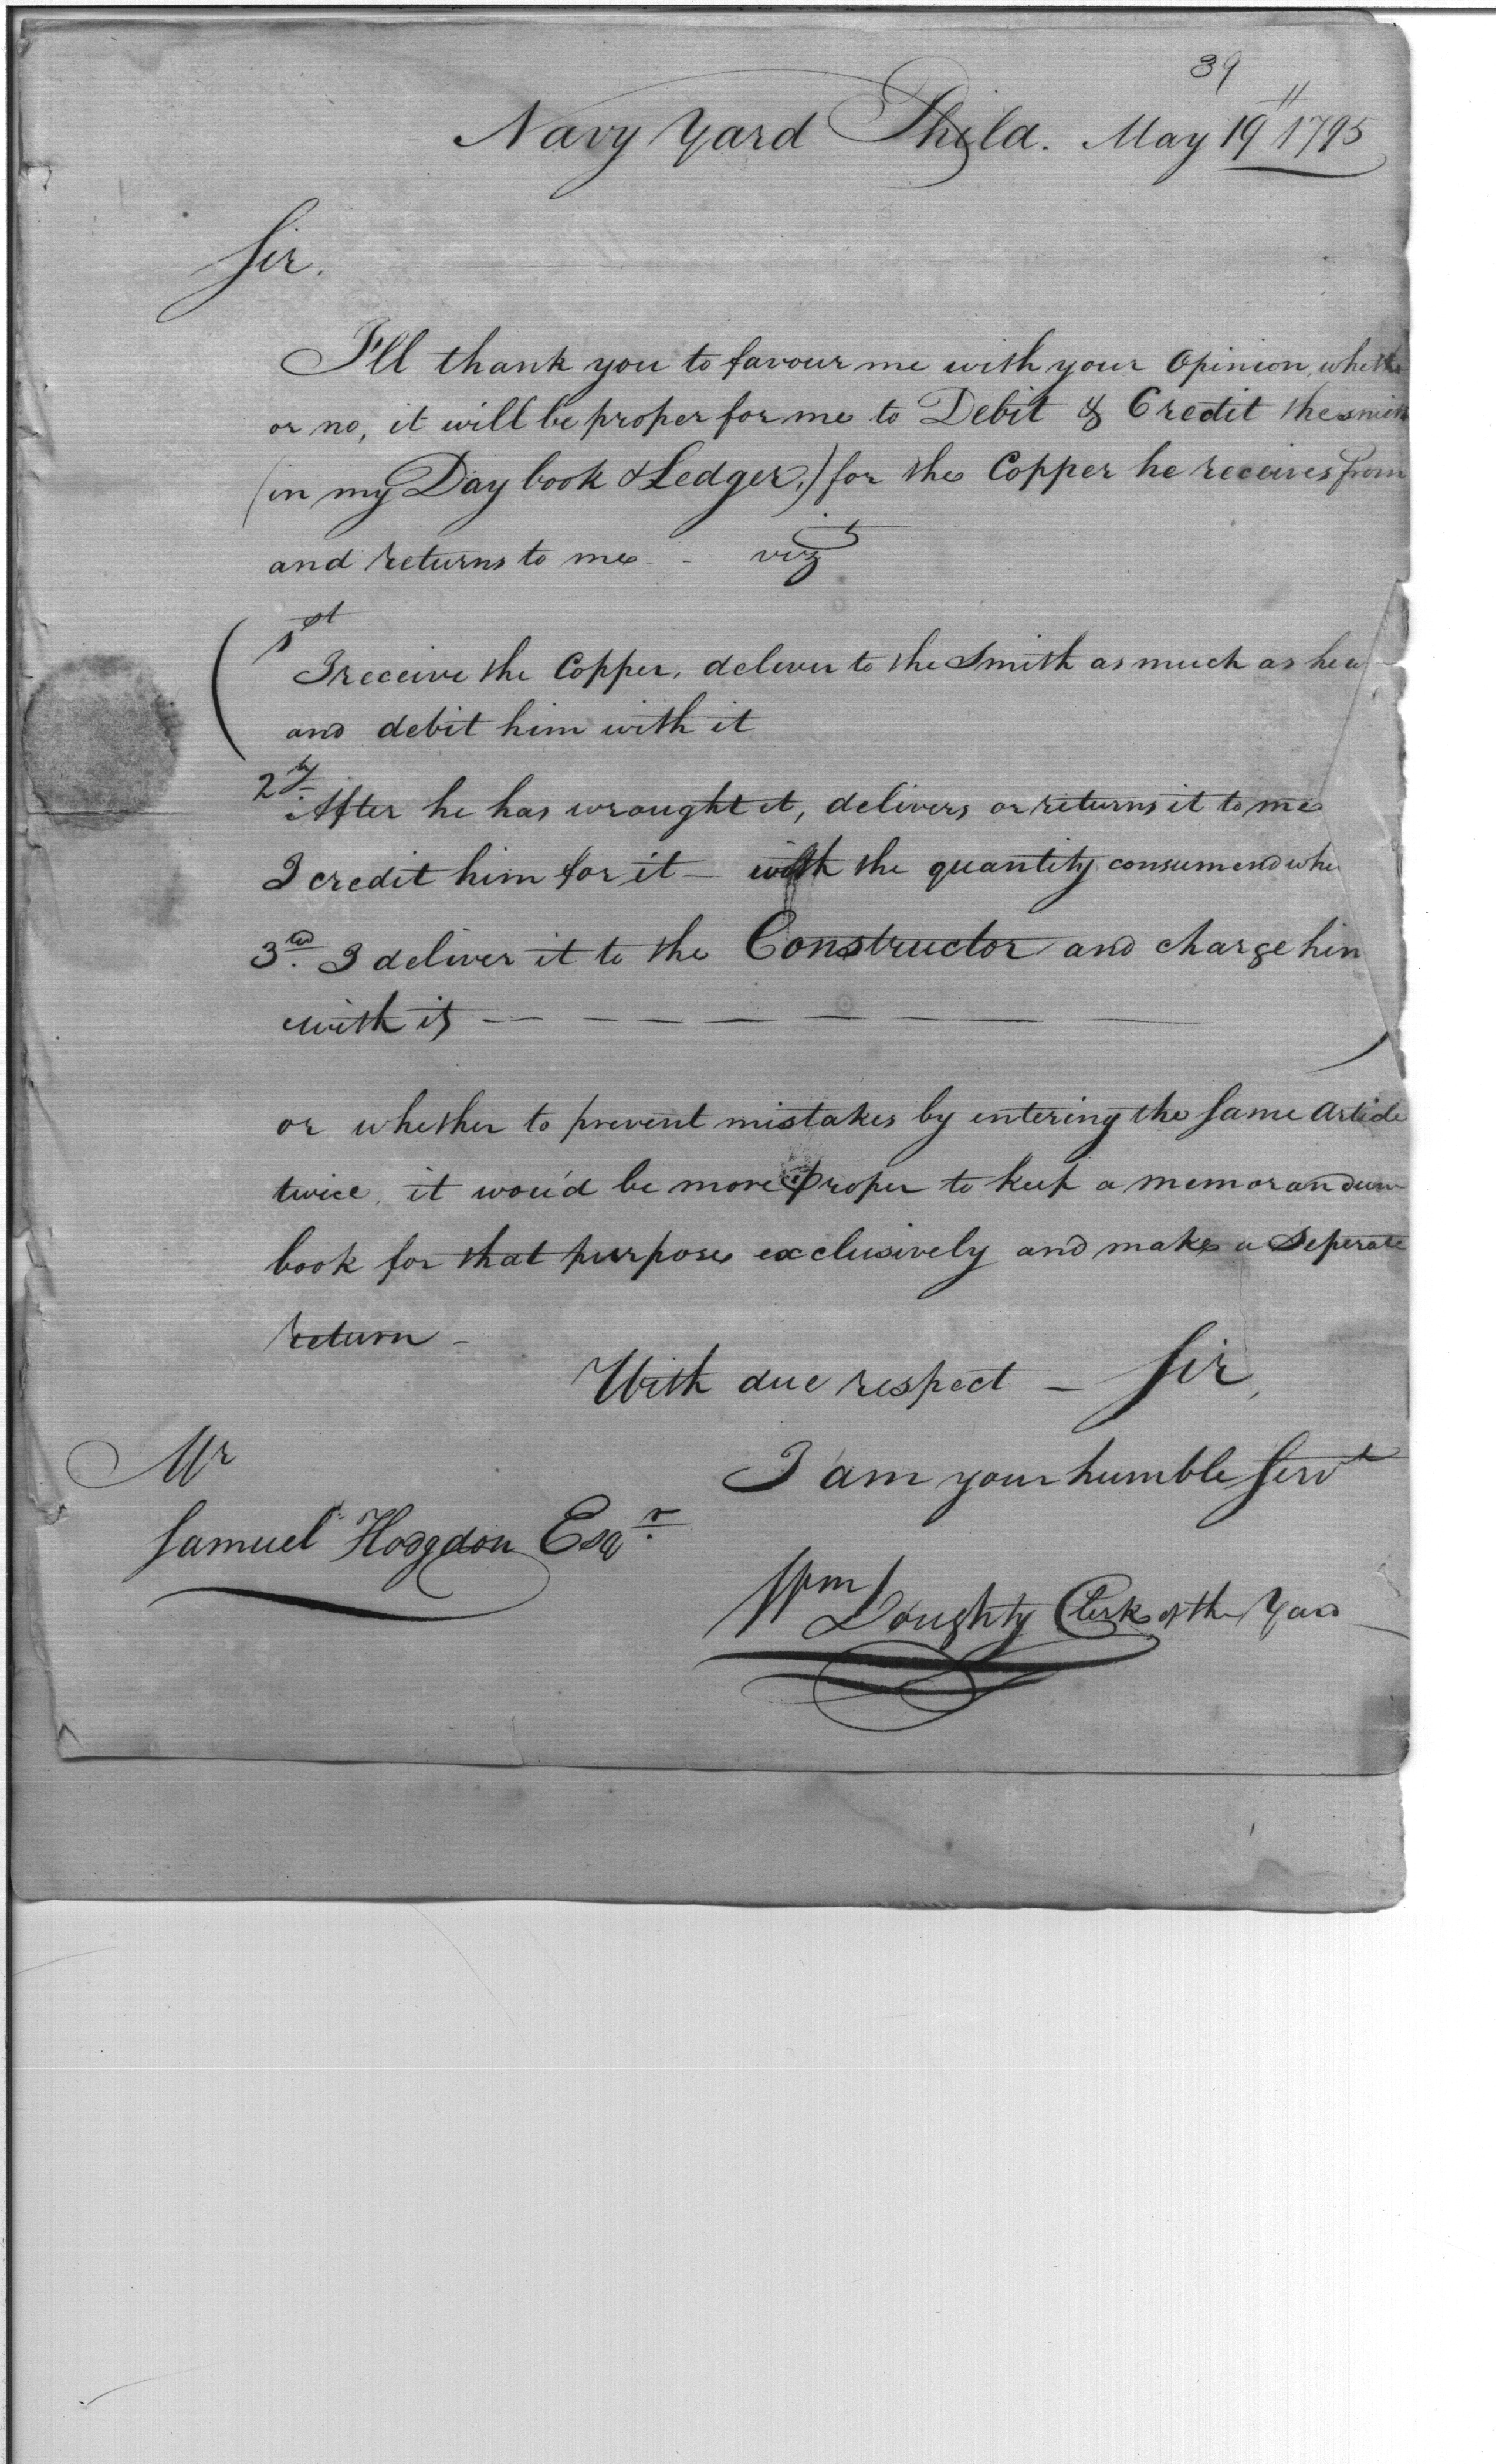 39
Navy Yard Phila. May 19th 1795
Sir.
I'll thank you to favour me with your Opinion, whethe
or no, it will be proper for me to Debit & Credit the smith
(in my Day book & Ledger,) for the Copper he receives from
and returns to me - viz
1st
I receive the Copper, deliver to the Smith as much as he
and debit him with it
2ly
After he has wrought it, delivers or returns it to me
I credit him for it — with the quantity consumend whe
3rd. I deliver it to the Constructor and charge him
with it — — — — — — —
or whether to prevent mistakes by entering the same Article
twice, it wou'd be more proper to keep a memorandum
book for that purpose exclusively and make a Seperate
return -
With due respect — Sir,
I am your humble Servt
Mr
Samuel Hodgdon Esqr.
Wm Doughty Clerk of the Yard